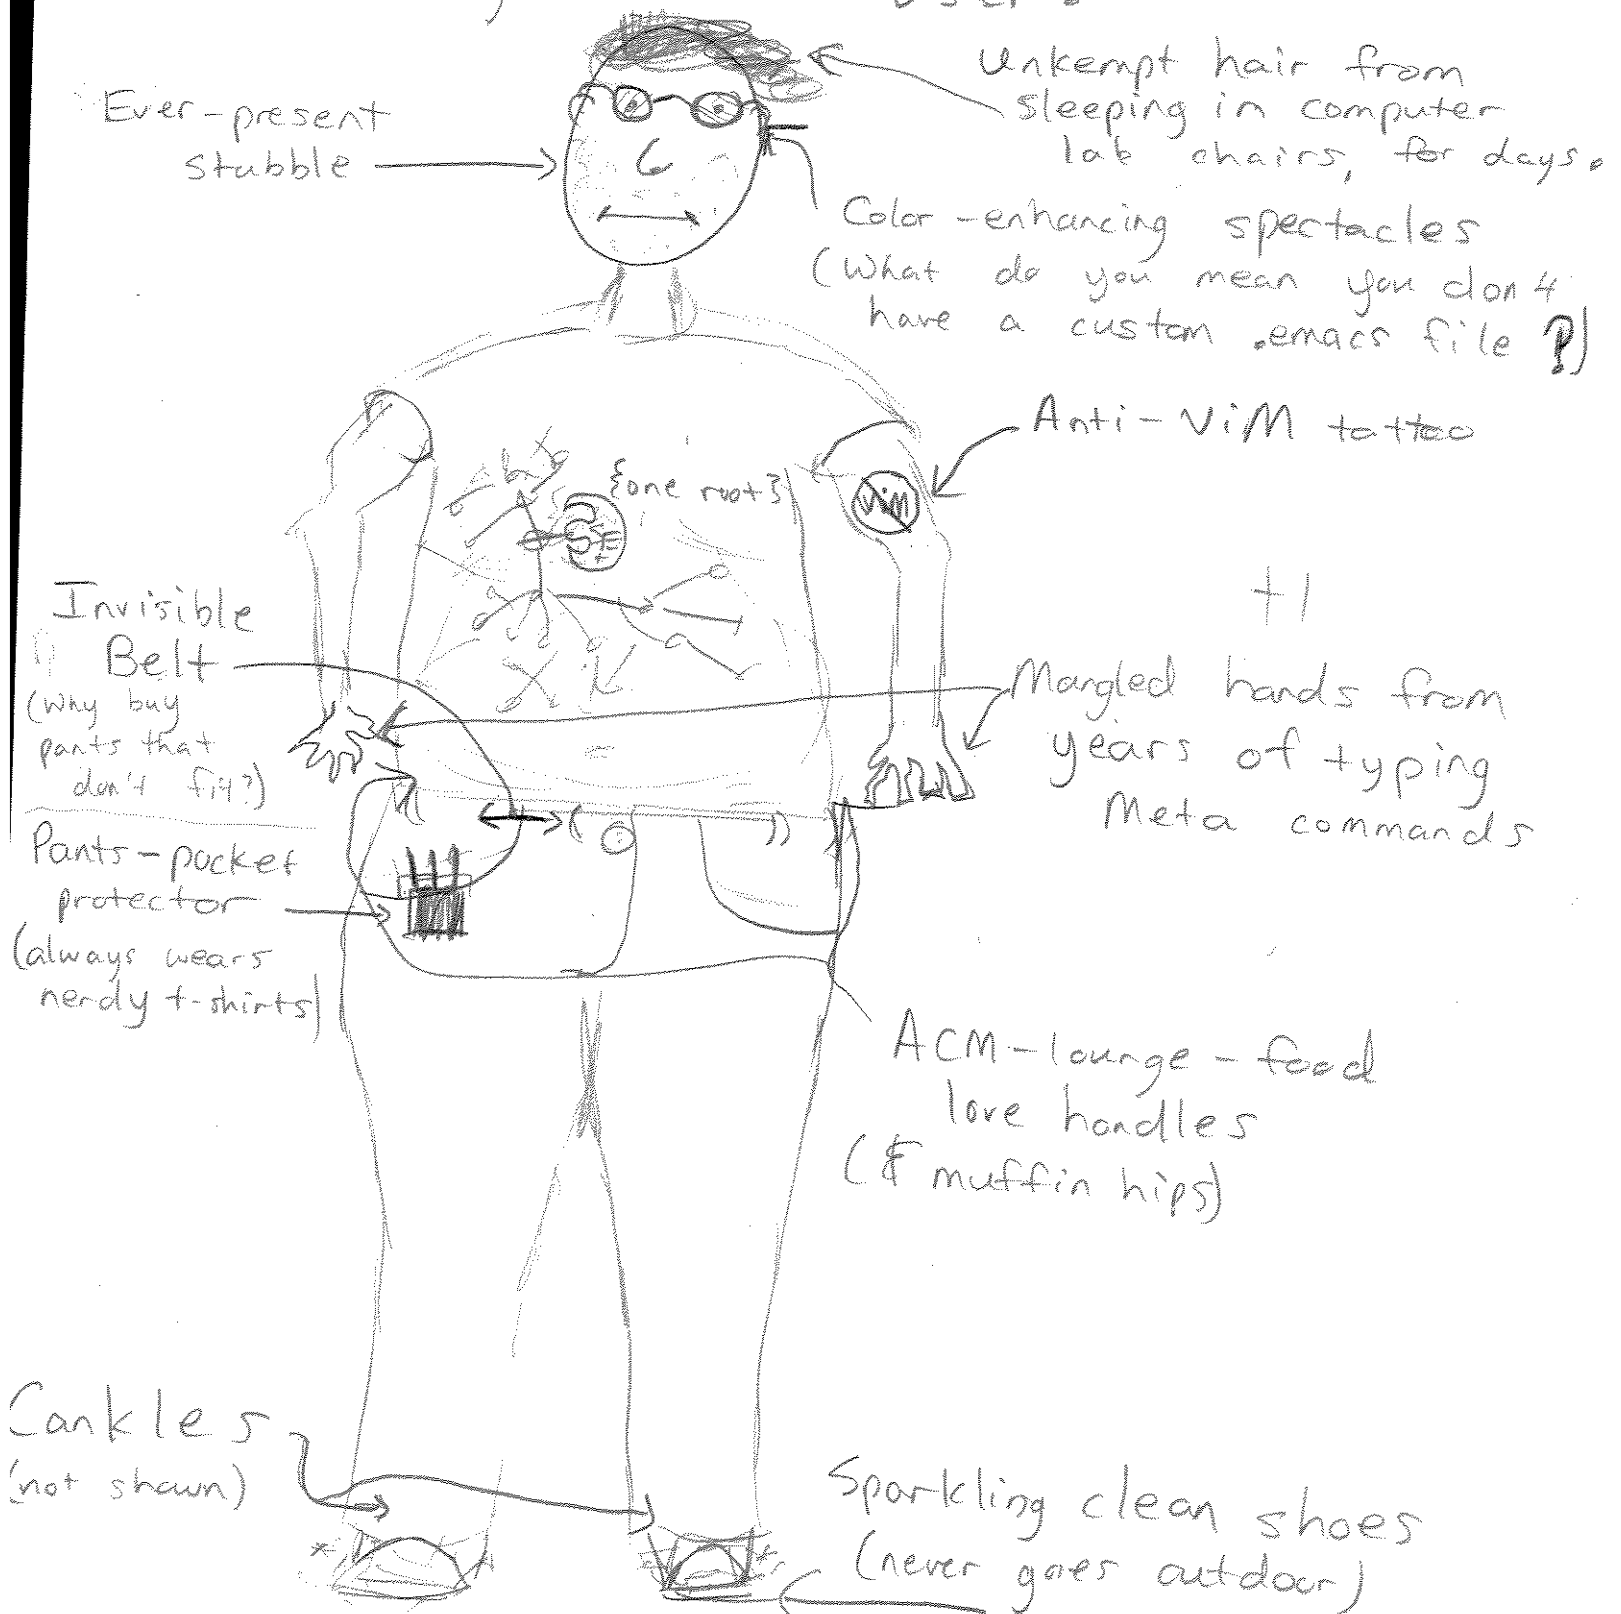 User
Unkempt hair from
sleeping in computer
lab chairs, for days.
Ever-present
stubble
Color-enhancing spectacles
(What do you mean you don't
have a custom .emacs file?)
Anti-ViM tattoo
{one root}
ViM
Invisible
Belt
(Why buy
pants that
don't fit?)
+1
Mangled hands from
years of typing
Meta commands
Pants-pocket
protector
(always wears
nerdy t-shirts)
ACM-lounge-food
love handles
(& muffin hips)
Cankles
(not shown)
Sparkling clean shoes
(never goes outdoor)